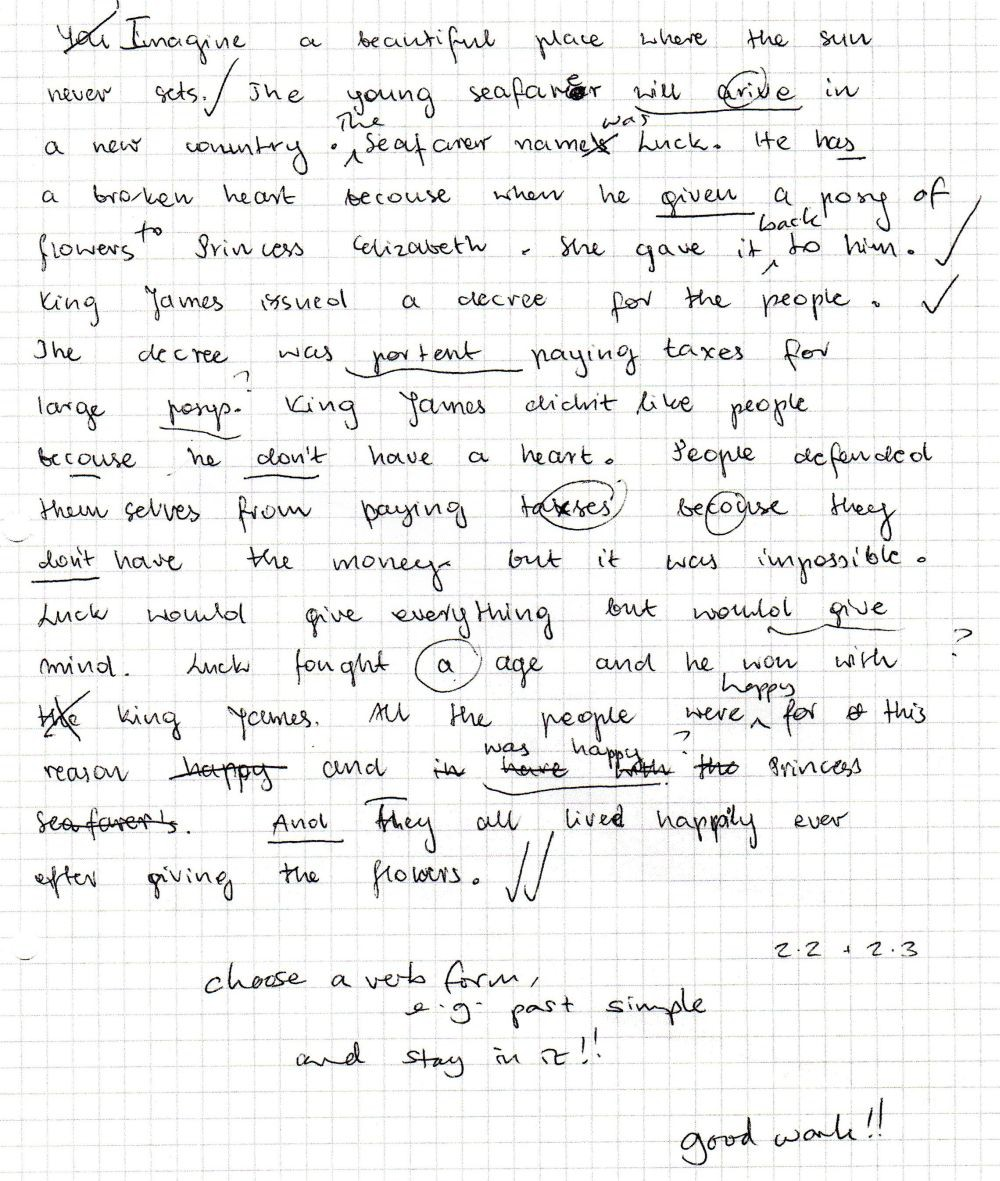 You Imagine a beautiful place where the sun
never sets. The young seafarer will arive in
a new country. The Seafarer name was Luck. He has
a broken heart becouse when he given a posy of
flowers to Princess Elizabeth. She gave it back to him.
King James issued a decree for the people.
The decree was portent paying taxes for
large posyp. ? King James didn't like people
becouse he don't have a heart. People defended
them selves from paying taxses becouse they
don't have the money but it was impossible.
Luck would give everything but would give
mind. Luck fought a age and he won with ?
the King James. All the people were happy for this
reason happy and in was happy ? have both the Princess
seafarer's. And They all lived happily ever
after giving the flowers.
2.2 + 2.3
choose a verb form,
e.g. past simple
and stay in it!!
good work!!